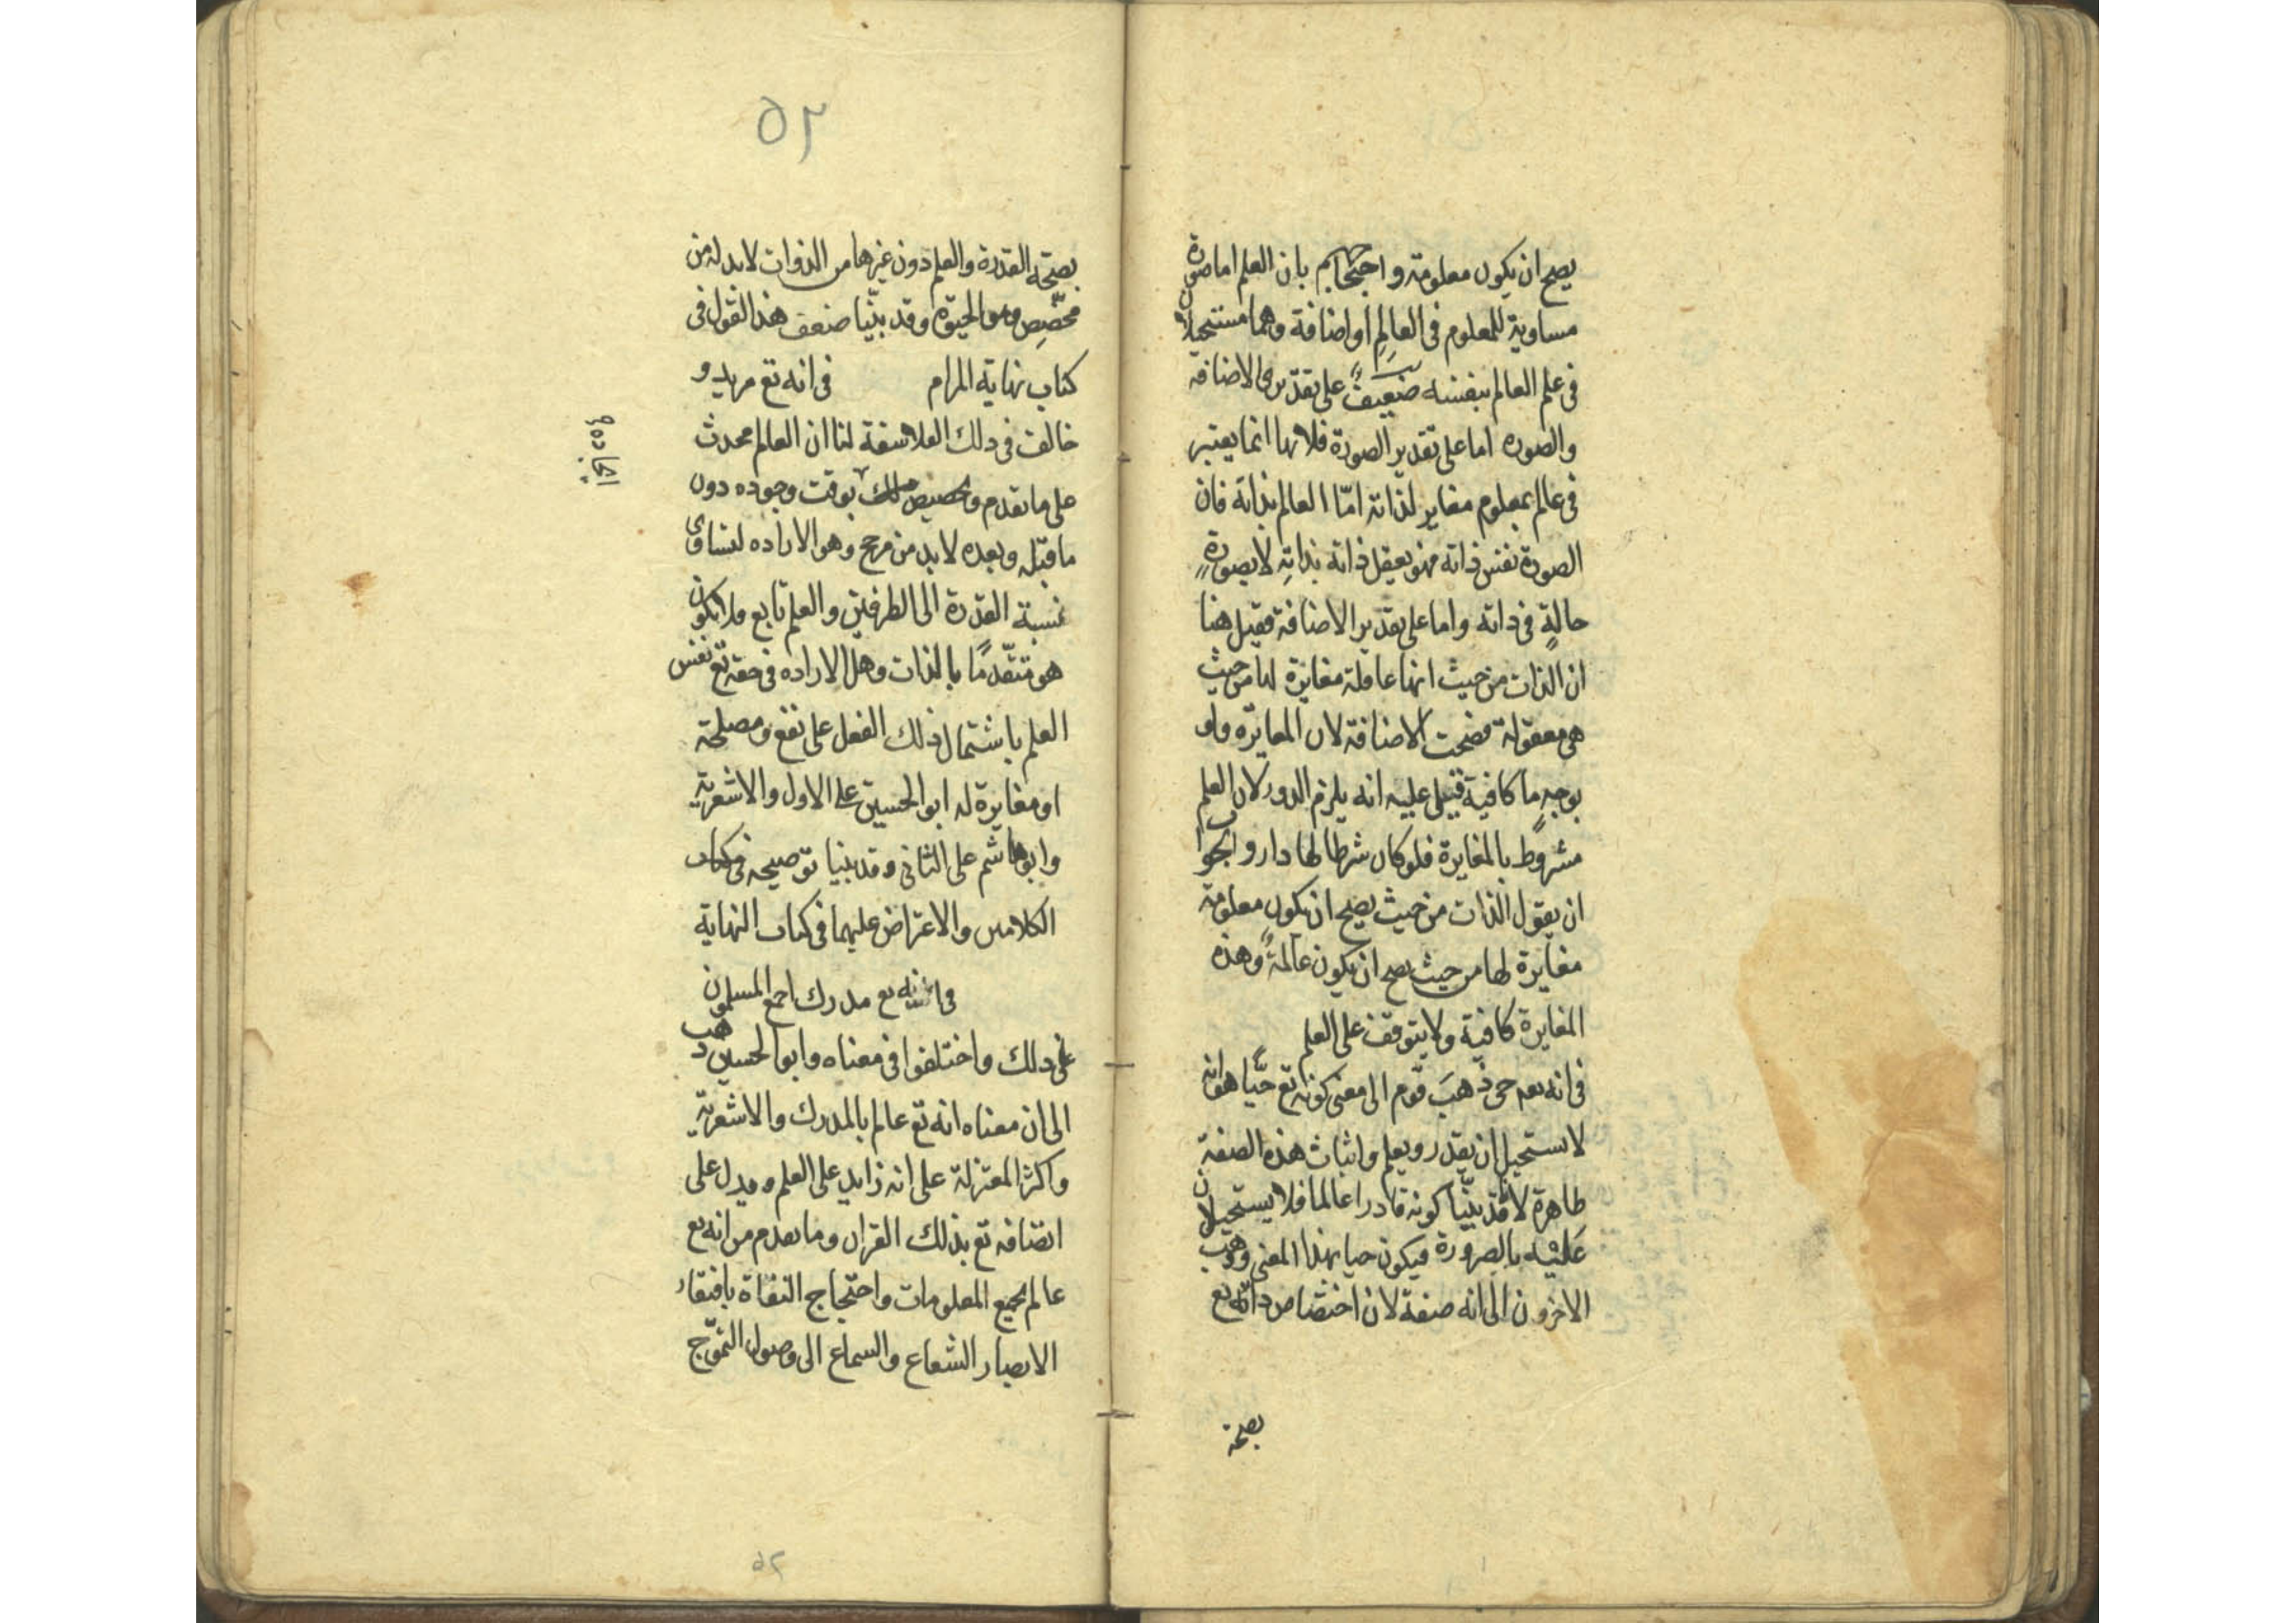 يصح ان يكون معلومة واحتجاجهم بان العلم اما صورة
مساوية للمعلوم فى العالِم او اضافة وهما مستحيلان
فى علم العالم بنفسه ضعيفٌ على تقديرى الاضافة
والصوره اما على تقدير الصورة فلانها انما يعتبر
فى عالم بمعلوم مغاير لذاته امّا العالم بذاته فان
الصورة نفس ذاته فهو يعقل ذاته بذاتِه لا بصورةٍ
حالةٍ فى ذاته واما على تقدير الاضافة فقيل هنا
ان الذات من حيث انها عاقلة مغايرة لها من حيث
هى معقولة فصحت الاضافة لان المغايرة ولو
بوجهٍ ما كافية قيل عليه انه يلزم الدور لان العلم
مشروط بالمغايرة فلو كان شرطا لها دار والجواب
ان يقول الذات من حيث يصح ان يكون معلومة
مغايرة لها من حيث يصح ان يكون عالمةً وهذه
المغايرة كافية ولا يتوقف على العلم
فى انه تع حى ذهبَ قوم الى معنى كونه تع حيًّا هو انه
لا يستحيل ان يقدر ويعلم واثبات هذه الصفة
ظاهرة لانا قد بيّنّا كونه قادرا عالما فلا يستحيلان
عَليْه بالضرورة فيكون حيا بهذا المعنى وذهب
الاخرون الى انه صفة لان اختصاص ذاته تع
بصحة
٥٢
بصحّة القدرة والعلم دون غيرها من الذوات لا بد له من
مخصّصٍ وهو الحيوة وقد بيّنّا ضعف هذا القول فى
كتاب نهاية المرام فى انه تع مريد و
خالف فى ذلك الفلاسفة لنا ان العالم محدث
على ما تقدم وتخصيص ذلك بوقت وجوده دون
ما قبله وبعده لا بد من مرجح وهو الاراده لتساوى
نسبة القدرة الى الطرفين والعلم تابع فلا يكون
هو متقدّمًا بالذات وهل الاراده فى حقه تع نفس
العلم باشتمال ذلك الفعل على نفع ومصلحة
او مغايرة له ابو الحسين على الاول والاشعرية
وابو هاشم على الثانى وقد بينا توضيحه فى كتاب
الكلامين والاعتراض عليهما فى كتاب النهاية
فى انه تع مدرك اجمع المسلمون
على ذلك واختلفوا فى معناه وابو الحسين ذهب
الى ان معناه انه تع عالم بالمدرك والاشعرية
واكثر المعتزلة على انه زايد على العلم ويدل على
اتصافه تع بذلك القران وما تقدم من انه تع
عالم بجميع المعلومات واحتجاج النفاة بافتقار
الابصار الشعاع والسماع الى وصول التموّج
٥٢